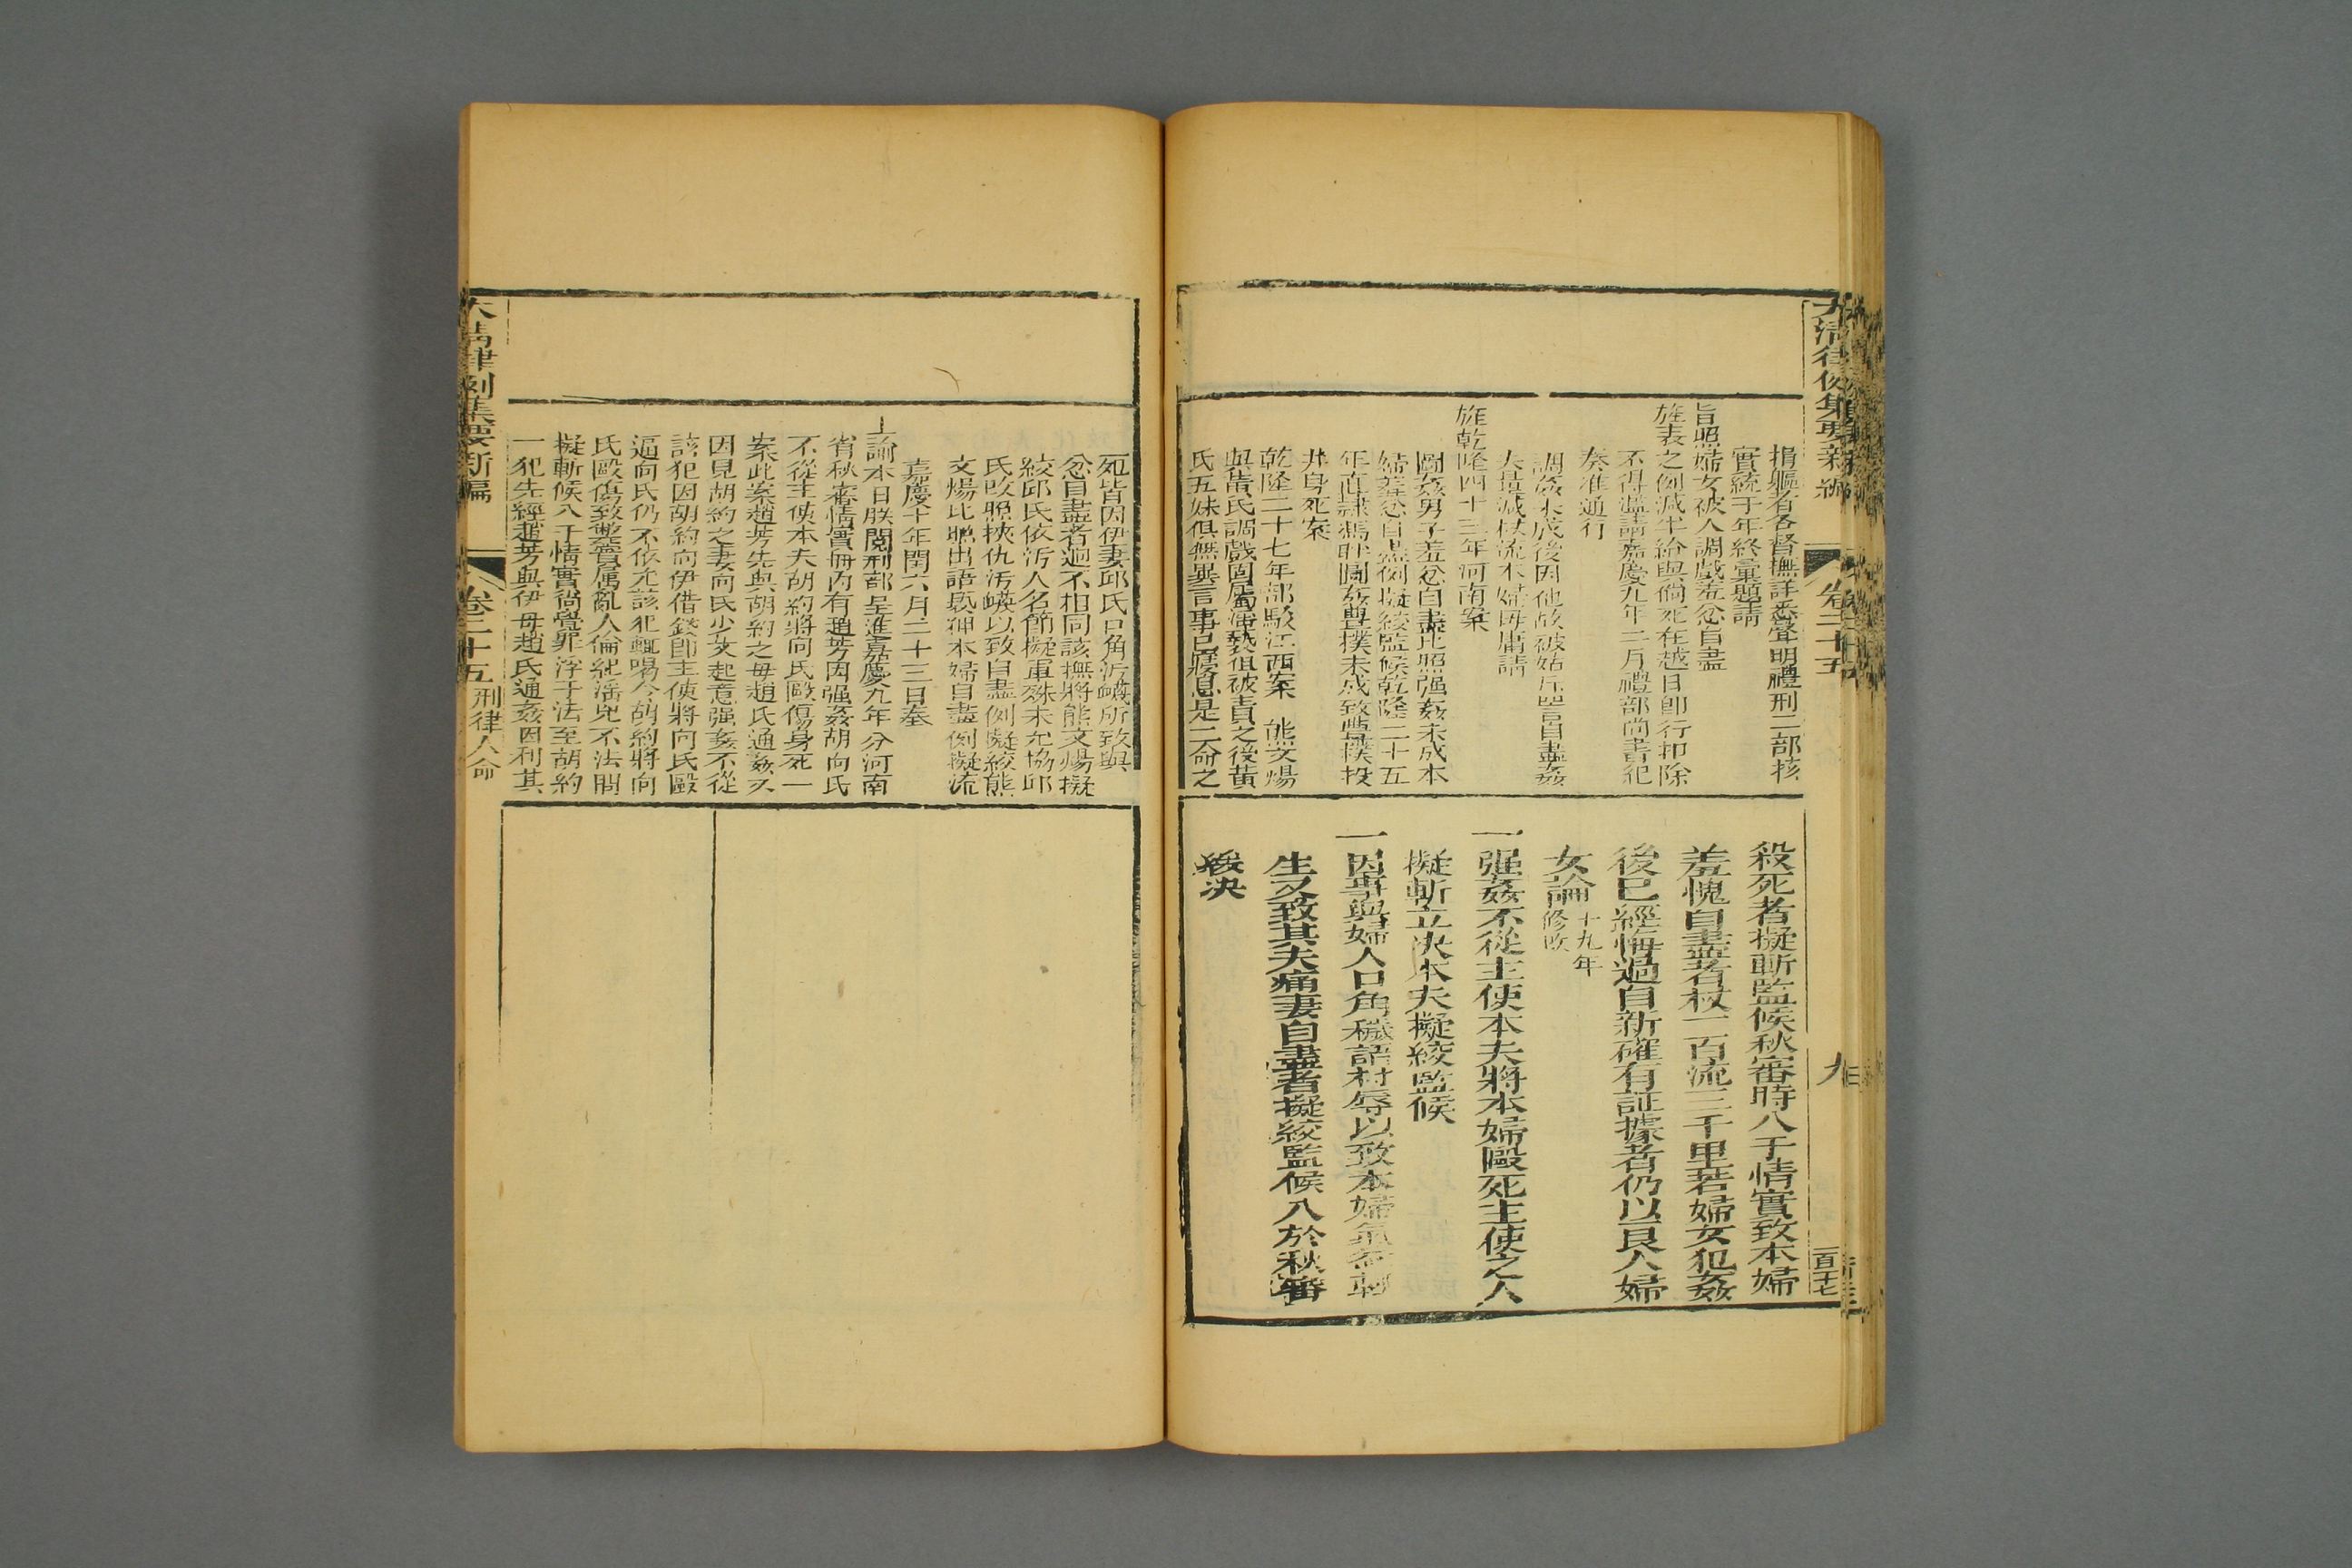 大清律例集要新編
卷二十五
捐軀者各督撫詳悉聲明禮刑二部核
實統于年終彙題請
旨照婦女被人調戲羞忿自盡
旌表之例減半給與倘死在越日卽行扣除
不得濫請嘉慶九年二月禮部尚書紀
奏准通行
調姦未成後因他故被姑斥詈自盡姦
夫量減杖流本婦毋庸請
旌乾隆四十三年河南案
圖姦男子羞忿自盡比照强姦未成本
婦羞忿自盡例擬絞監候乾隆二十五
年直隸馮
井身死案
乾隆二十七年部駁江西案 熊文煬
與黃氏調戲因屬
氏五妹俱無異言事已寢息是二命之
殺死者擬斬監候秋審時入于情實致本婦
羞愧自盡者杖一百流三千里若婦女犯姦
後已經悔過自新確有証據者仍以良人婦
女論十九年
修改
一强姦不從主使本夫將本婦毆死主使之人
擬斬立決本夫擬絞監候
一因事與婦人口角穢語村辱以致本婦氣忿
生又致其夫痛妻自盡者擬絞監候入於秋審
緩決
死皆因伊妻邱氏口角汚衊所致與
忿自盡者迥不相同該撫將熊文煬擬
絞邱氏依汚人名節擬軍殊未允協邱
氏改照挾仇汚衊以致自盡例擬絞熊
文煬比照出語褻狎本婦自盡例擬流
嘉慶十年閏六月二十三日奉
上諭本日朕閱刑部呈進嘉慶九年分河南
省秋審情實冊內有趙芳因强姦胡向氏
不從主使本夫胡約將向氏毆傷身死一
案此案趙芳先與胡約之母趙氏通姦又
因見胡約之妻向氏少艾起意强姦不從
該犯因胡約向伊借錢卽主使將向氏毆
逼向氏仍不依允該犯輒喝令胡約將向
氏毆傷致斃實屬亂人倫紀淫兇不法問
擬斬候入于情實尚覺罪浮于法至胡約
一犯先經趙芳與伊母趙氏通姦因利其
大清律例集要新編
卷二十五
刑律人命